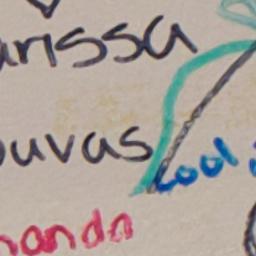 arissa
ouvas
cool
manda